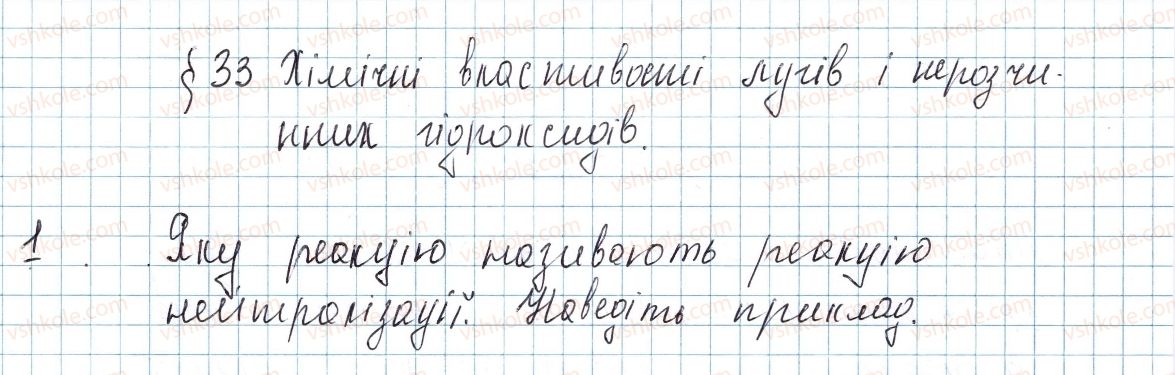 § 33 Хімічні властивості лугів і нерозчи-
нних гідроксидів.
1 . . Яку реакцію називають реакцію
нейтралізації. Наведіть приклад.